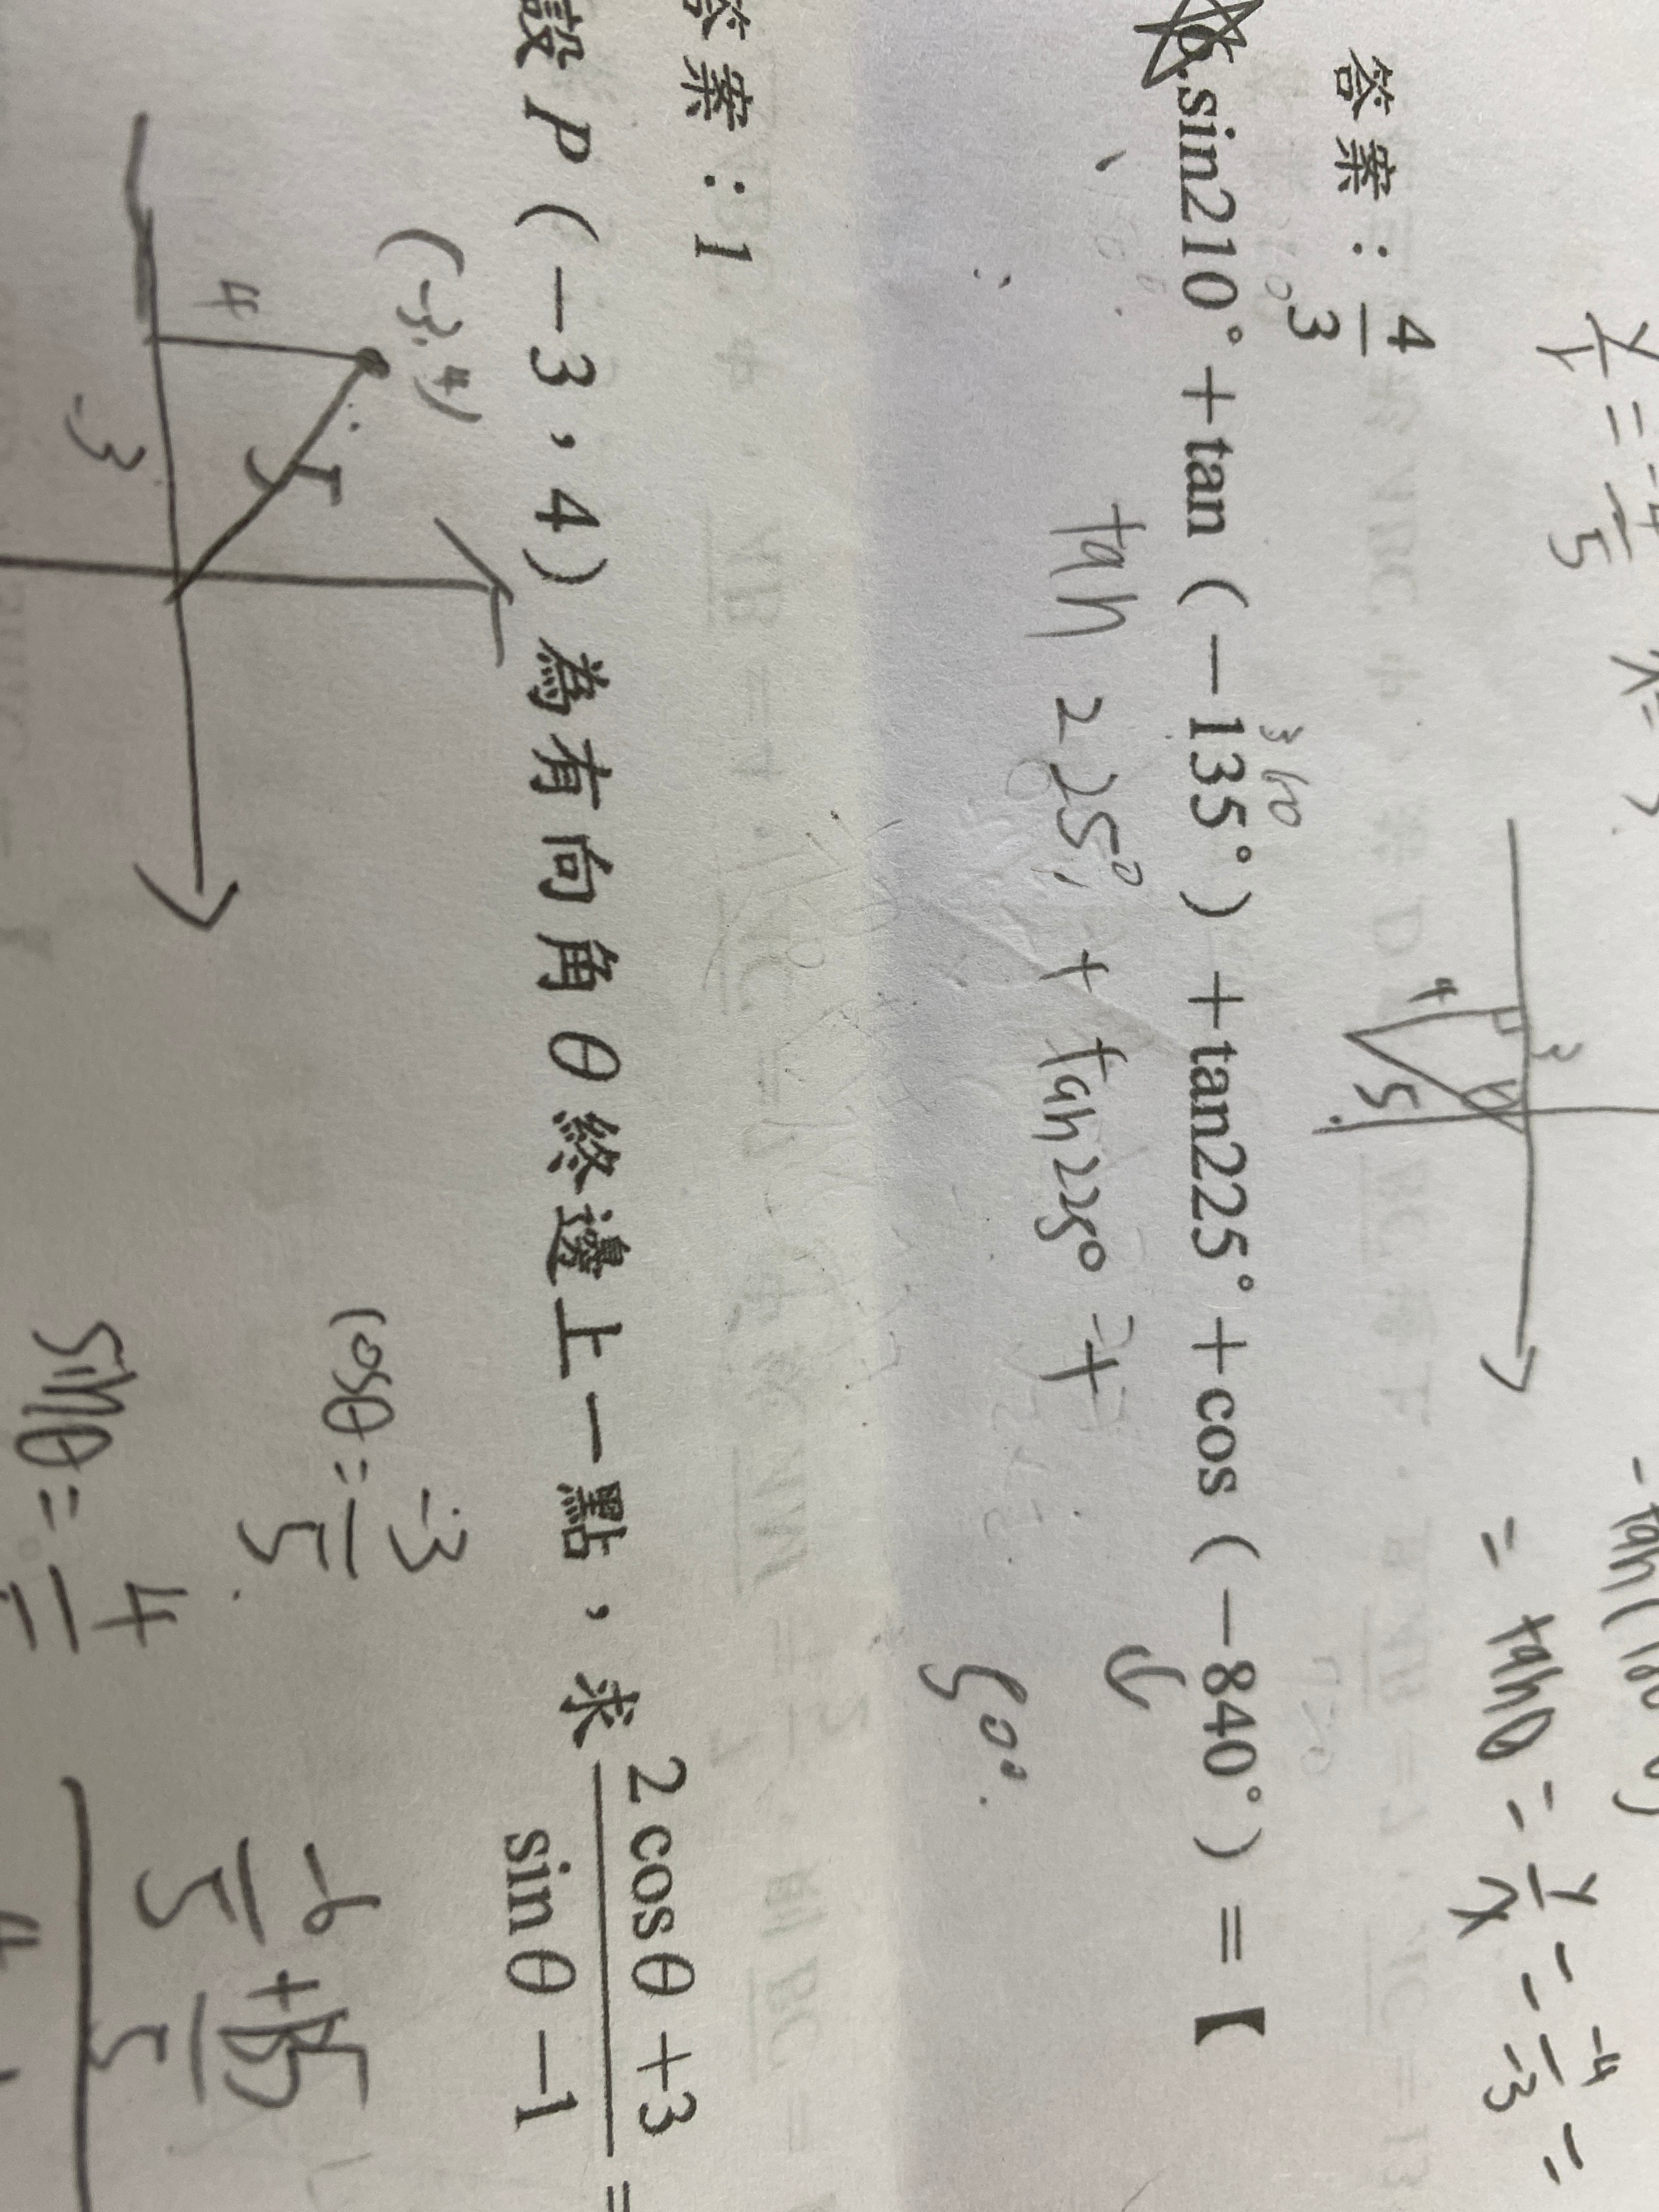 y/r = -4/5
-tan(180
= tanθ = y/x = -4/-3 =
4
3
5
答案：4/3
360
6.sin210°＋tan（－135°）＋tan225°＋cos（－840°）＝【
tan 225° + tan225°
60°
答案：1
設 P（－3，4）為有向角 θ 終邊上一點，求 2cosθ＋3/sinθ－1 ＝
(-3,4)
4
5
-3
cosθ = -3/5
sinθ = 4
-6/5 + 15/5